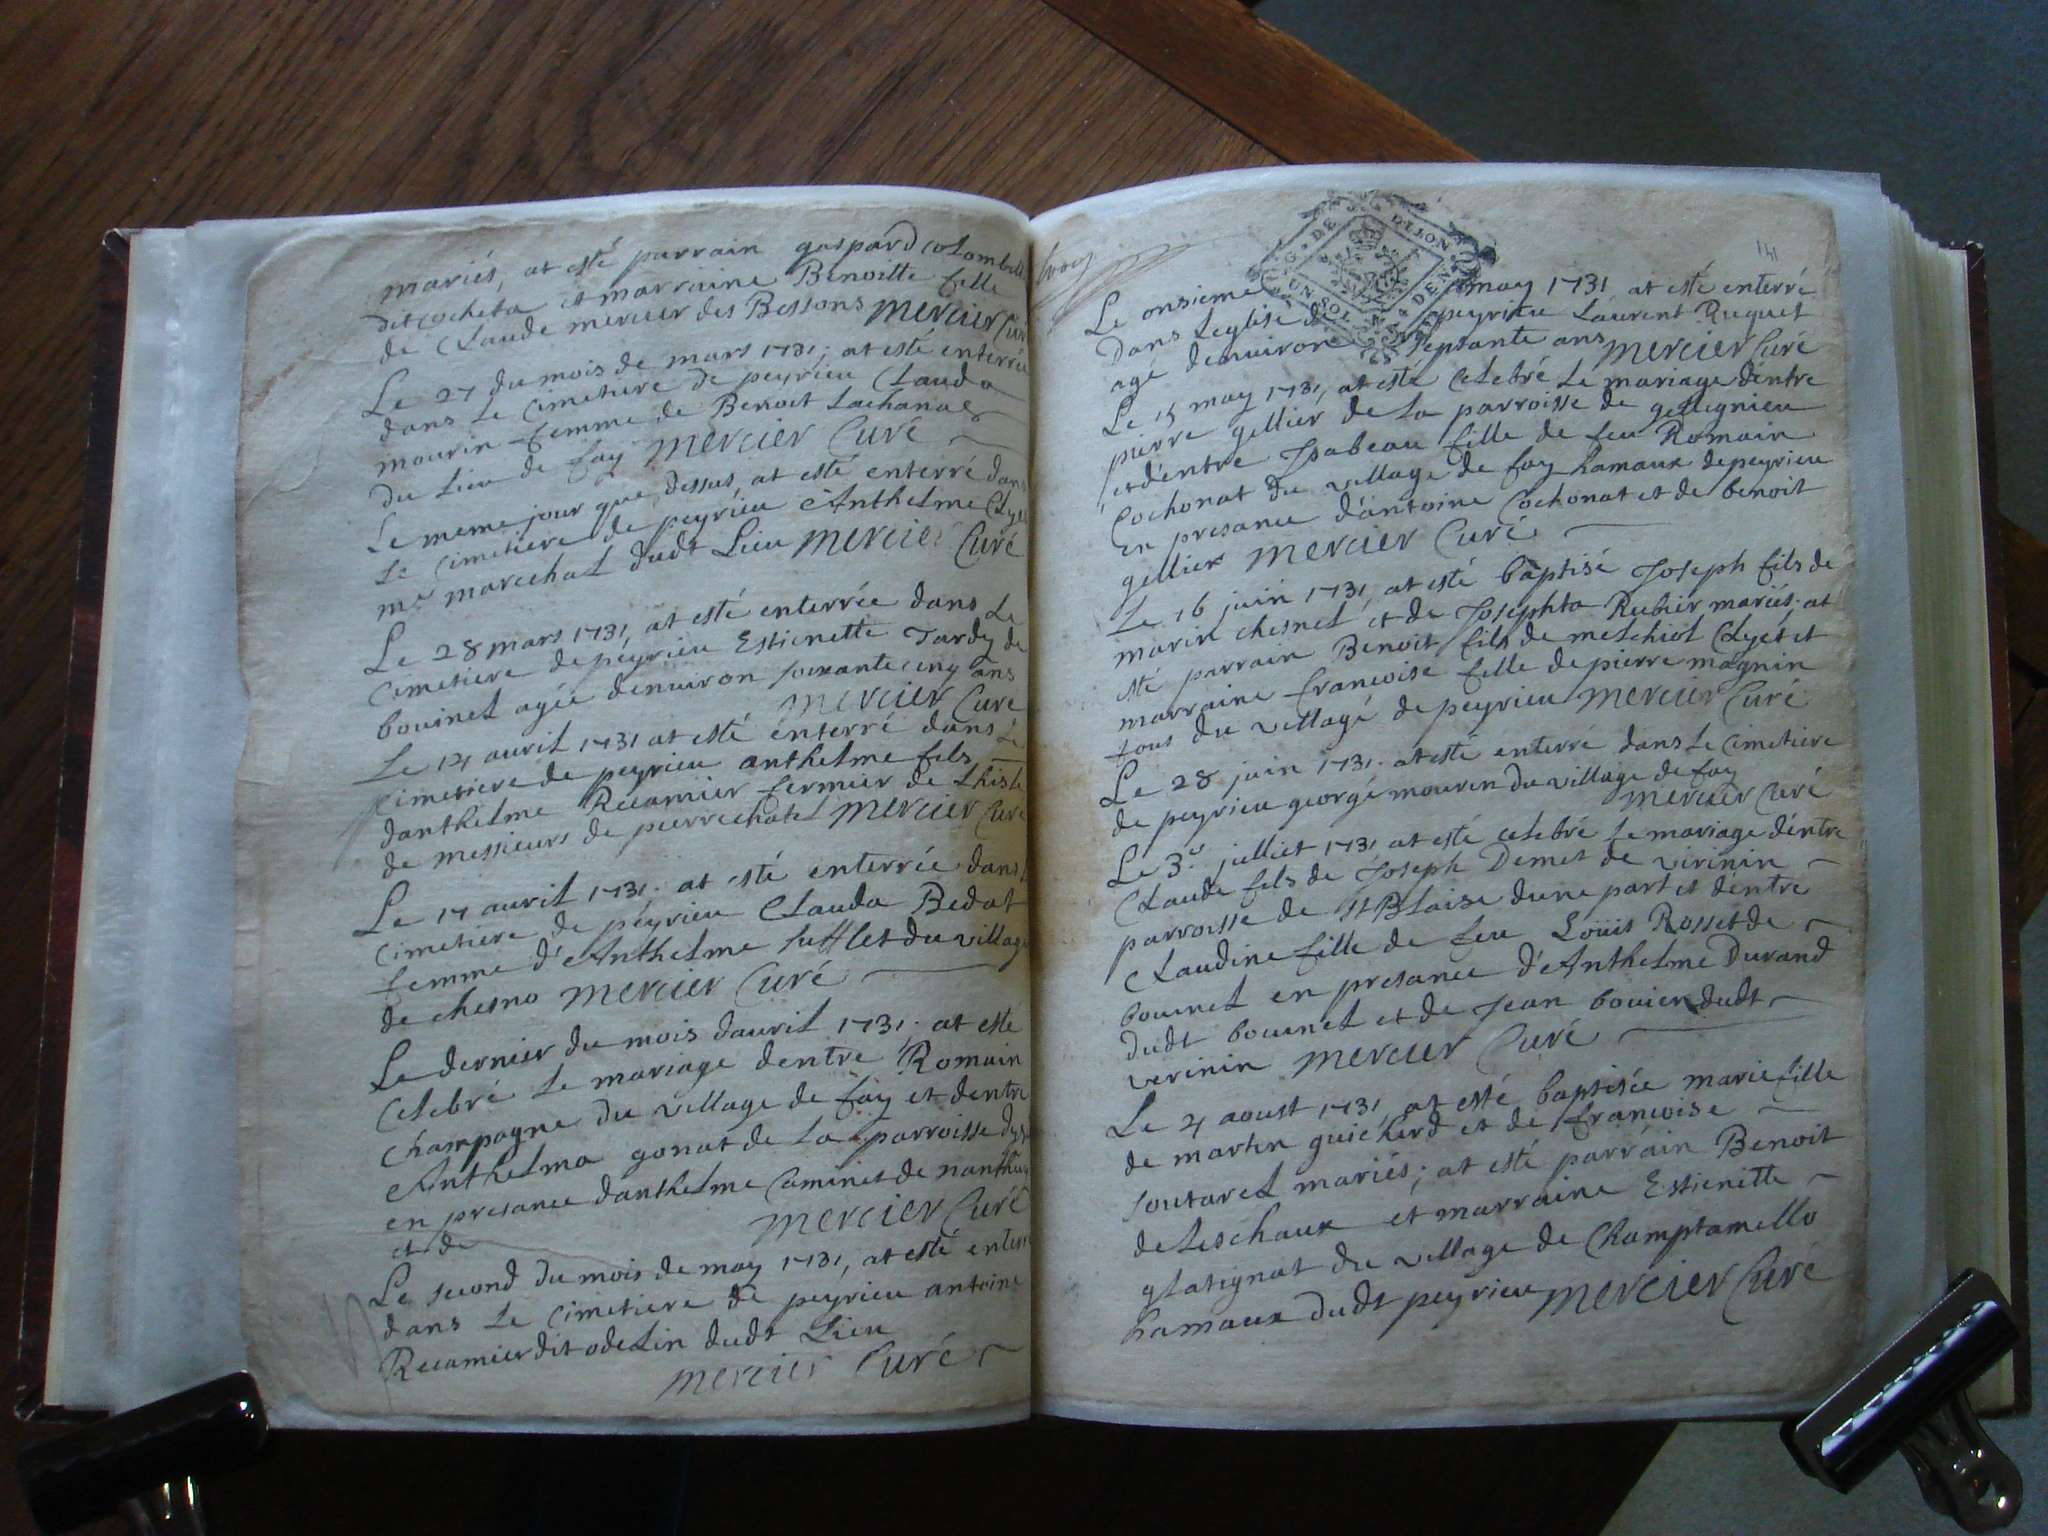 mariés, at esté parrain gaspard colombet
dit cocheta et marraine Benoitte fille
de Claude mercier des Bessons mercier Curé
Le 27 du mois de mars 1731; at esté enterrée
dans Le Cimetiere de peyrieu Clauda
mourin femme de Benoit Lachana
du Lieu de fay mercier Curé
Le meme jour que dessus, at esté enterré dans
Le Cimetiere de peyrieu Anthelme
me marechal dudt Lieu mercier Curé
Le 28 mars 1731, at esté enterrée dans Le
Cimetiere de peyrieu Estienette Tardy de
bovinel agée denviron soixante cinq ans
mercier Curé
Le 14 avril 1731 at esté enterré dans Le
Cimetiere de peyrieu anthelme fils
danthelme Recamier fermier de Lhisle
de messieurs de pierrechatel mercier Curé
Le 17 avril 1731. at esté enterrée dans
Cimetiere de peyrieu Clauda Bedat
femme d'Anthelme suffet du village
de chesno mercier Curé
Le dernier du mois davril 1731. at esté
Celebré Le mariage dentre Romain
Champagne du village de fay et dentre
Anthelma gonat de La parroisse
en presance danthelme Caminet de nanthuy
et de mercier Curé
Le second du mois de may 1731, at esté enterré
dans Le Cimetiere de peyrieu antoine
Recamier dit odelin dudt Lieu
mercier Curé
G. DE DIJON
UN SOL
141
Le onsieme may 1731 at esté enterré
Dans Leglise de peyrieu Laurent Ruguet
agé denviron septante ans mercier Curé
Le 15 may 1731, at esté Celebré Le mariage dentre
pierre gellier de La parroisse de gelignieu
et dentre Isabeau fille de feu Romain
Cochonat du village de fay hamaux de peyrieu
En presance dantoine Cochonat et de benoit
gellier mercier Curé
Le 16 juin 1731, at esté baptisé Joseph fils de
marin chesnel et de Josephta Rubier mariés; at
esté parrain Benoit fils de melchiol Clyet et
marraine francoise fille de pierre magnin
tous du village de peyrieu mercier Curé
Le 28 juin 1731. at esté enterré dans Le Cimetiere
de peyrieu george mourin du village de fay
mercier Curé
Le 3e juilliet 1731 at esté celebré Le mariage dentre
Claude fils de Joseph Demet de virinin
parroisse de St Blaise dune part et dentre
Claudine fille de feu Louis Rosset de
bovinel en presance d'Anthelme Durand
dudt bovinel et de Jean bovier dudt
verinin mercier Curé
Le 4 aoust 1731, at esté baptisée marie fille
de martin guicherd et de francoise
soutarel mariés; at esté parrain Benoit
de Leschaux et marraine Estienette
glatignat du village de Champtamello
hamaux dudt peyrieu mercier Curé